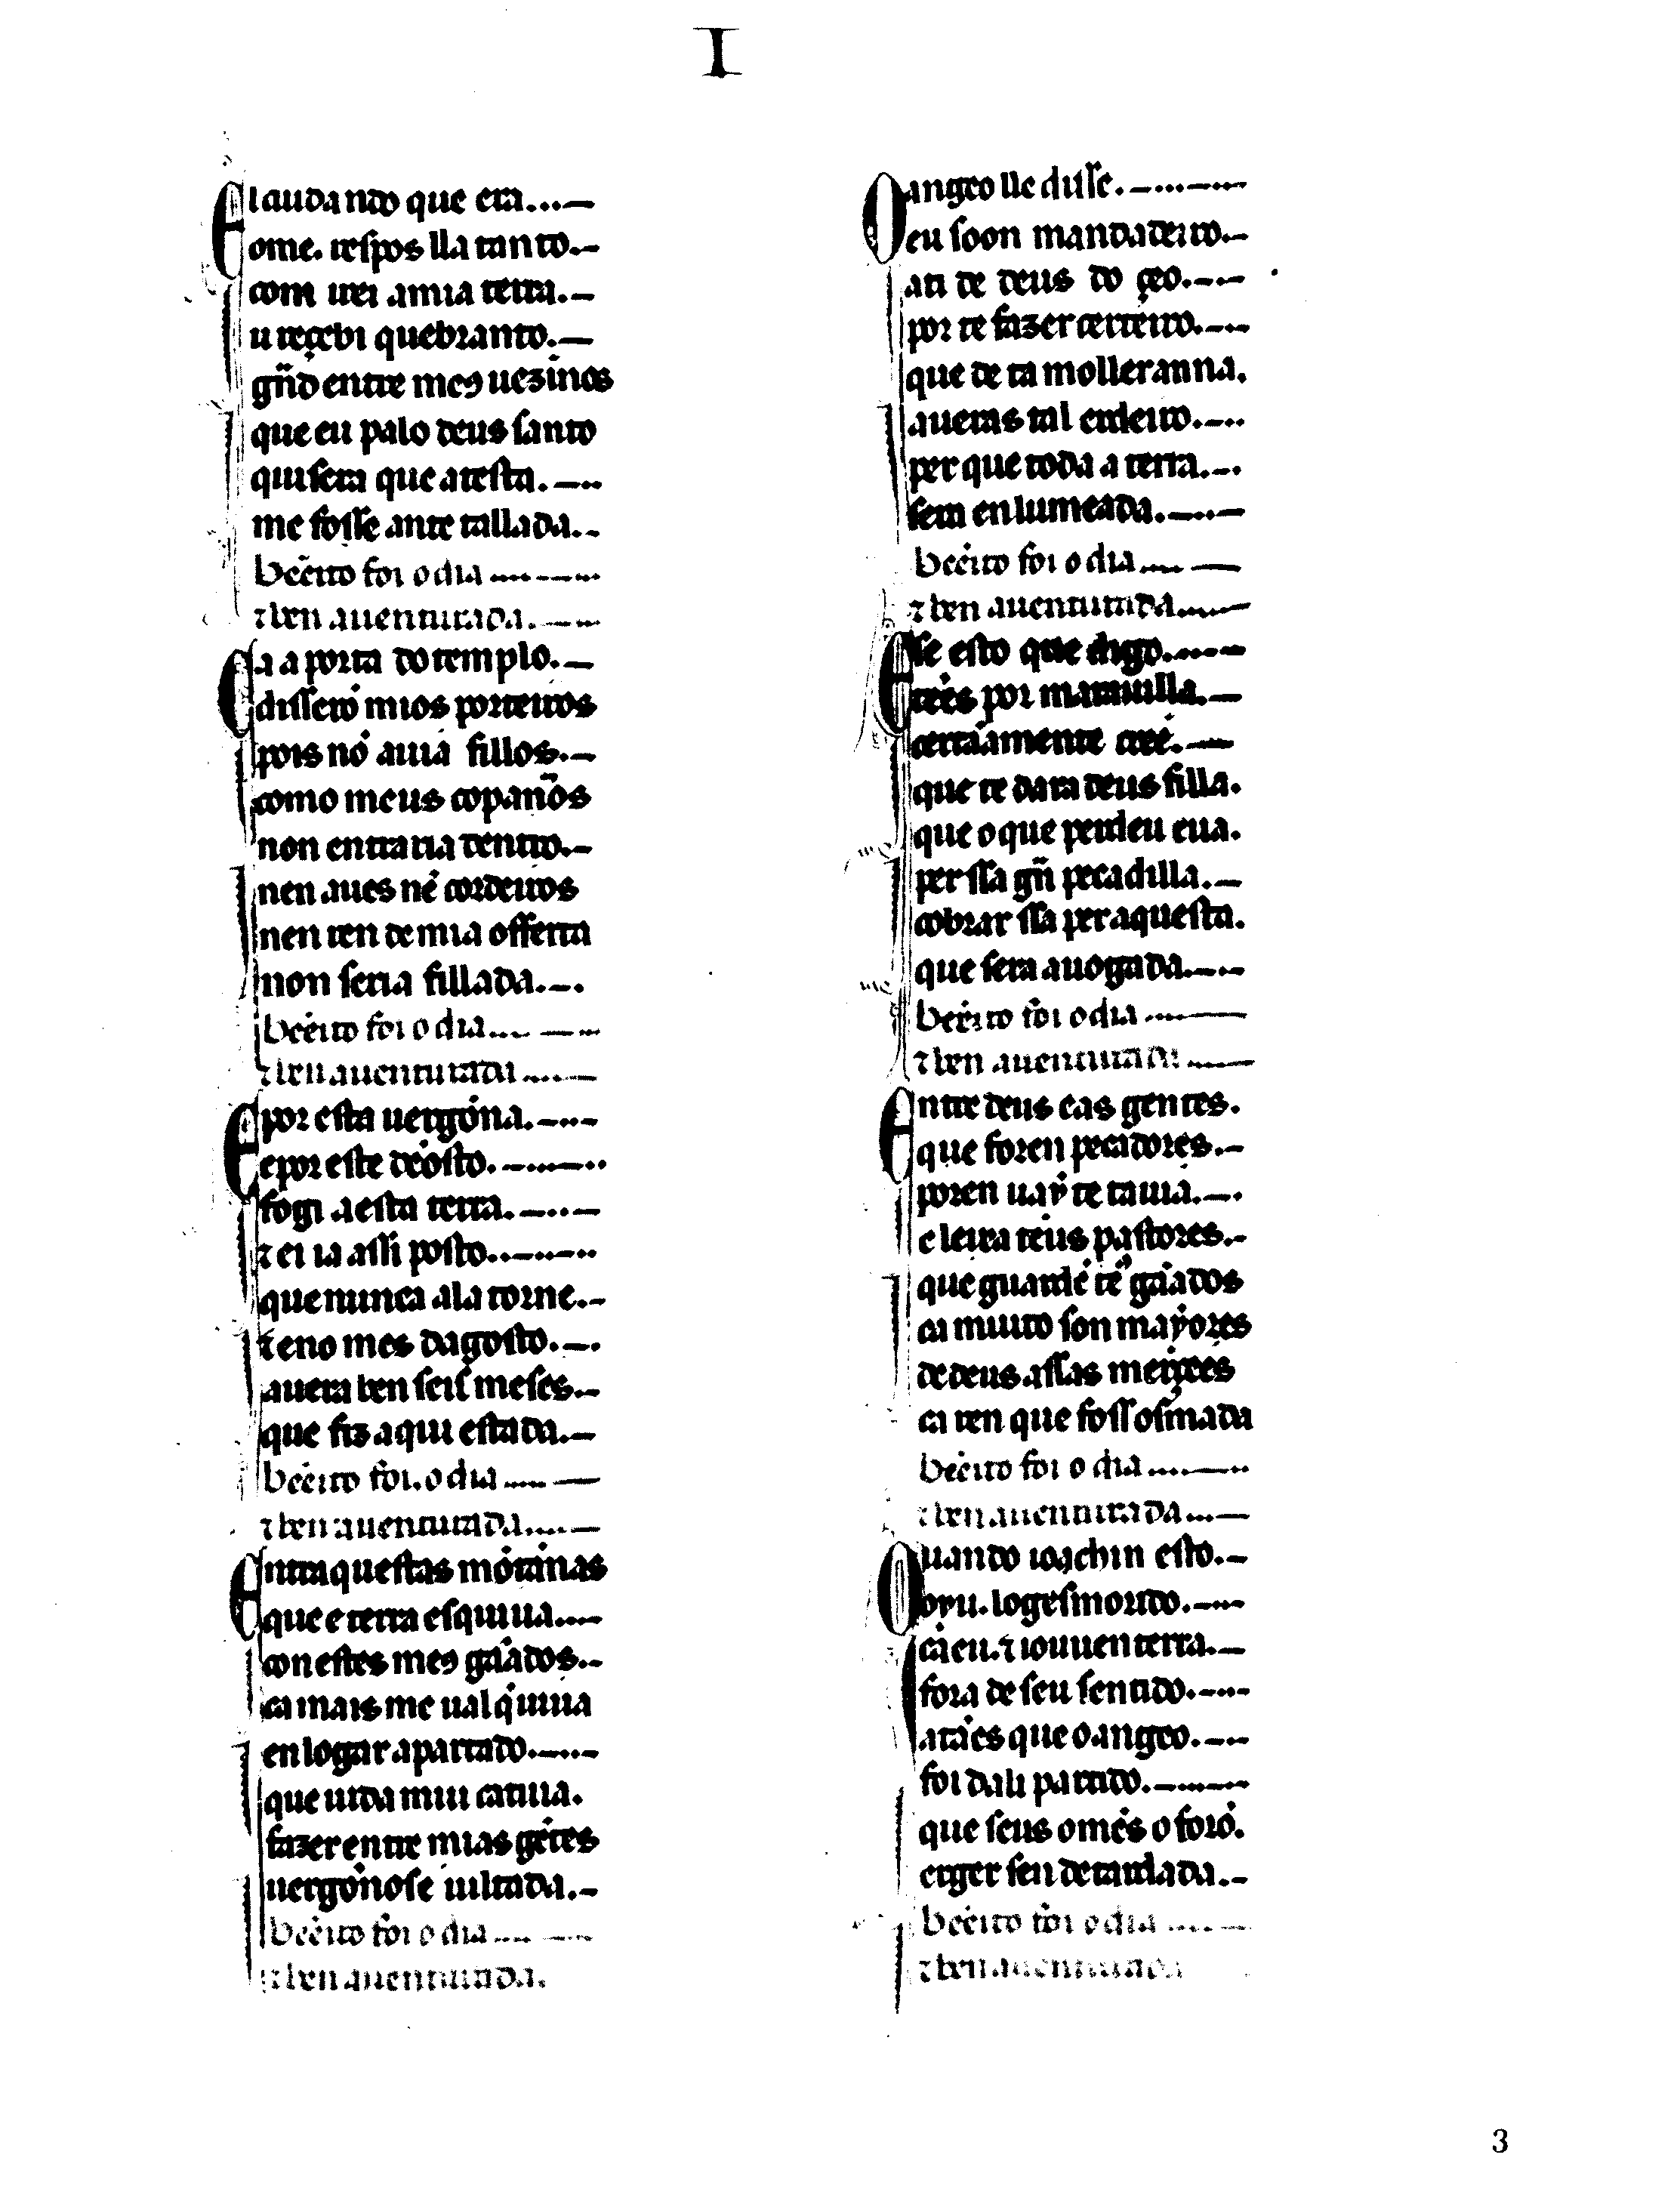 I
El cuidando que era...—
ome. respos lla tanto.—
com irei a mia terra.—
u reçebi quebranto.—
gñd entre meꝯ uezin̄os
que eu palo deus santo
quisera que a testa.—..
me fosse ante tallada.-
Bẽeito foi o dia ....—...
⁊ ben auenturada.—...
Ca a porta do templo.—
disserõ mios porteiros
pois nõ auia fillos.—
como meus cõpan̄os
non entraria dentro.—
nen aues nẽ cordeiros
nen ren de mia offerta
non seria fillada.—.
Bẽeito foi o dia.... —...
⁊ ben auenturada ....—
E por esta uergõna.—..—
e por este dẽosto.—..—..
fogi a esta terra.—..—
⁊ ei ia assi posto..—..—..
que nunca ala torne.—
⁊ eno mes dagosto.—.
auera ben seis meses.—
que fiz aqui estada.—
Bẽeito foi. o dia ..... —
⁊ ben auenturada....—
Entraquestas mõtan̄as
que e terra esquiua....
con estes meꝯ gãados.—
ca mais me ual q̇ uiua
en logar apartado.—..—
que uida mui catiua.
fazer entre mias gẽtes
uergon̄ose uiltada.—
Bẽeito foi o dia .... —..
⁊ ben auenturada.
O angeo lle disse.—...—..
eu soon mandadeiro.—
a ti de deus do çeo.—..—
por te fazer çerteiro.—..
que de ta moller anna.
aueras tal erdeiro.—..
per que toda a terra.—.
sera enlumeada.—..—
Bẽeito foi o dia.... —
⁊ ben auenturada....—
E se esto que digo.—..—
tẽes por marauilla.—
çertãamente cree.—
que te dara deus filla.
que o que perdeu eua.
per ssa gñ pecadilla.—
cobrar ssa per aquesta.
que sera auogada.—..
Bẽeito foi o dia ....—
⁊ ben auenturada ....—
Entre deus e as gentes.
que foren pecadores.—
poren uaỹ te ta uia.—.
e leixa teus pastores.—
que guardẽ teꝯ gãados
ca muito son mayores
de deus assas merçees
ca ren que foss osmada
Bẽeito foi o dia....—..
⁊ ben auenturada...—
Quando ioachin esto.—
oyu. loges mordo.—..
cãeu. ⁊ iouuen terra.—
fora de seu sentido.—..
atães que o angeo.—..
foi dali partido.—..—..
que seus omẽes o forõ.
erger sen detardada.—
Bẽeito foi o dia ....—
⁊ ben auenturada
3